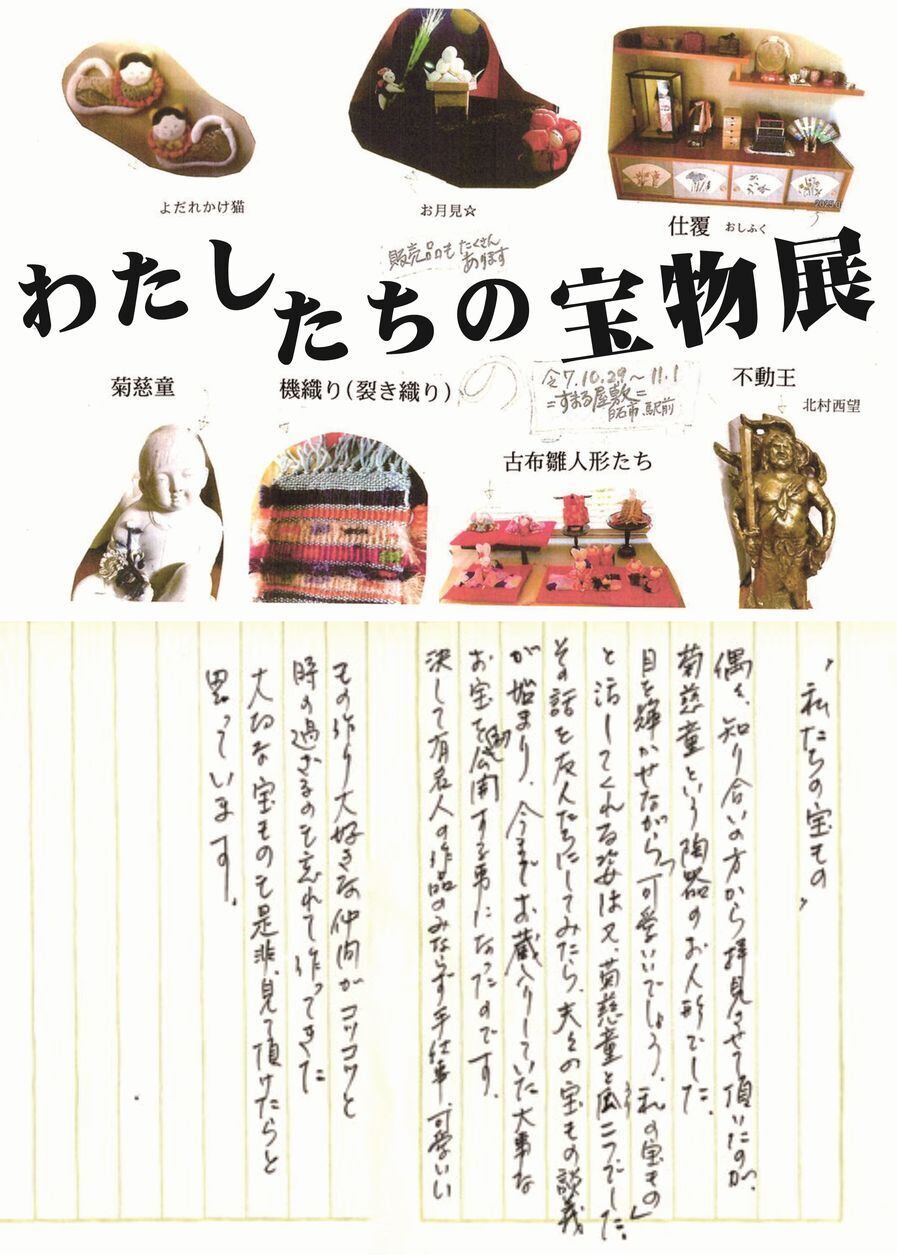 よだれかけ猫
お月見☆
仕覆 おしふく
販売品もたくさん
あります
わたしたちの宝物展
菊慈童
機織り(裂き織り)
の
令7.10.29〜11.1
=すまる屋敷=
白石市、駅前
不動王
北村西望
古布雛人形たち
〝私たちの宝もの〟
偶々、知り合いの方から拝見させて頂いたのが、
菊慈童という陶器のお人形でした。
目を輝かせながら「可愛いいでしょう、私の宝もの」
と話してくれる姿は又、菊慈童と瓜二つでした。
その話を友人たちにしてみたら、夫々の宝もの談義
が始まり、今までお蔵入りしていた大事な
お宝を公開する事になったのです。
決して有名人の作品のみならず手仕事、可愛いい
もの作り大好きな仲間がコツコツと
時の過ぎるのも忘れて作ってきた
大切な宝ものも是非、見て頂けたらと
思っています。